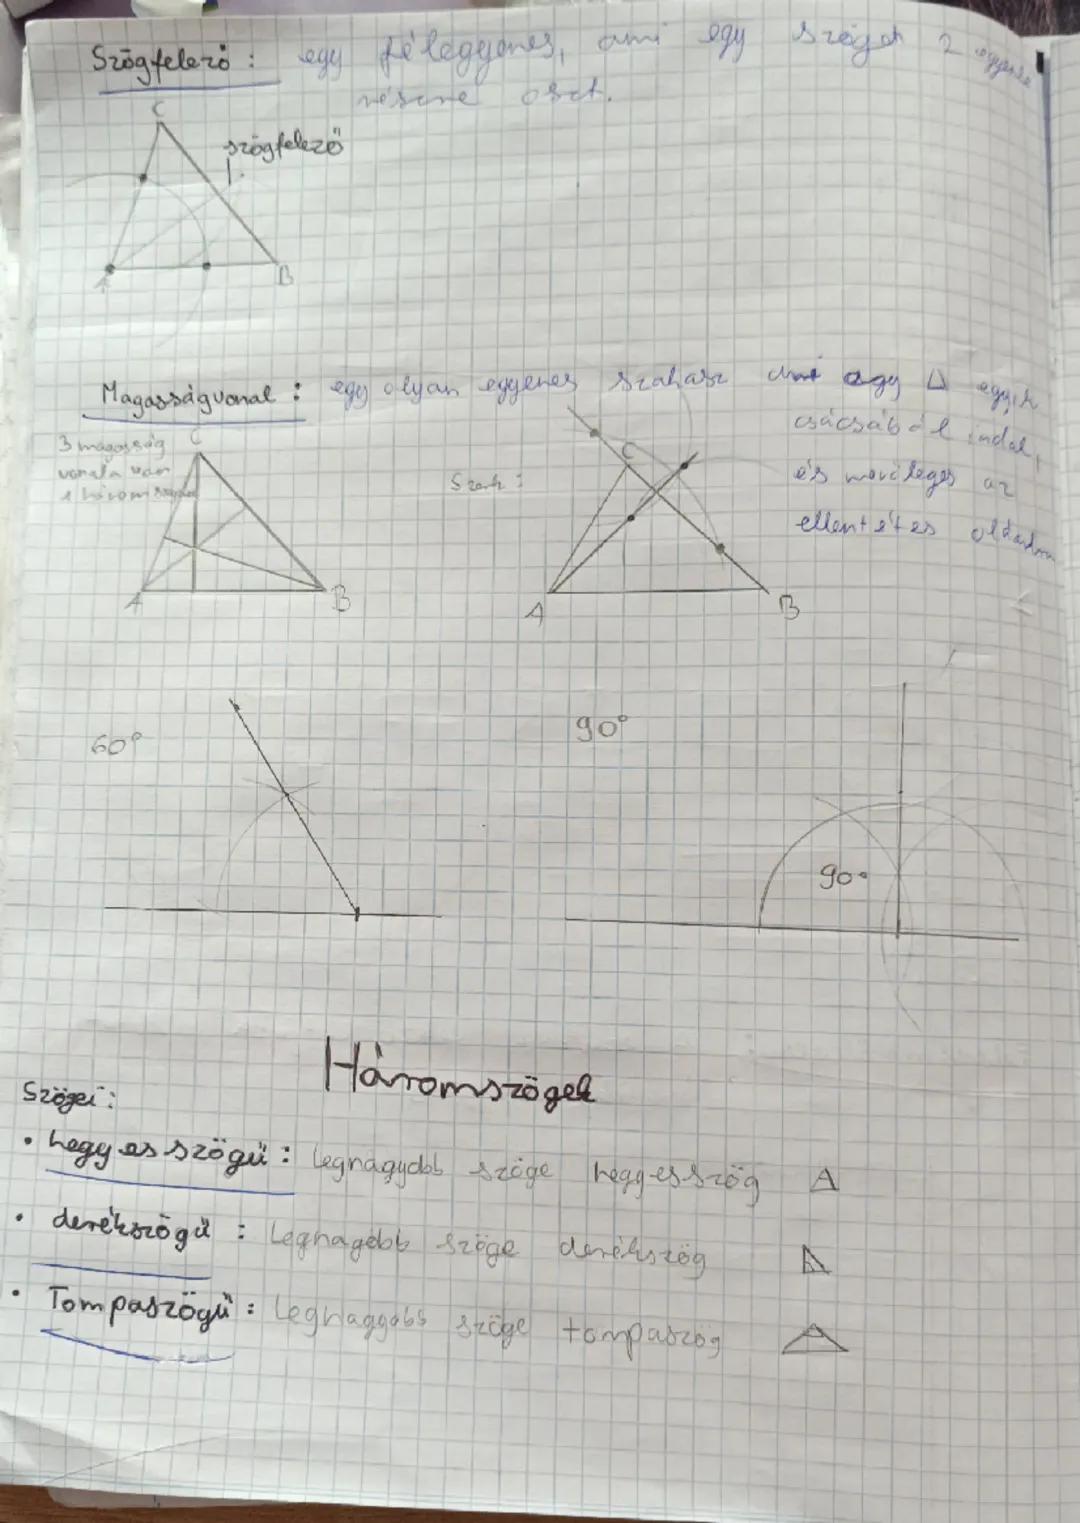 Szögfelező : egy félegyenes, ami egy szöget 2 egyenlő
részre oszt.
C
szögfelező
A
B
Magasságvonal : egy olyan egyenes szakasz ami egy △ egyik
csúcsából indul,
és merőleges az
ellentétes oldalra
3 magasság
vonala van
1 háromszögnek
C
A
B
Szerk :
C
A
B
60°
90°
90°
Háromszögek
Szögei :
• hegyesszögű : legnagyobb szöge hegyesszög
• derékszögű : Legnagobb szöge derékszög
• Tompaszögű : Legnagyobb szöge tompaszög